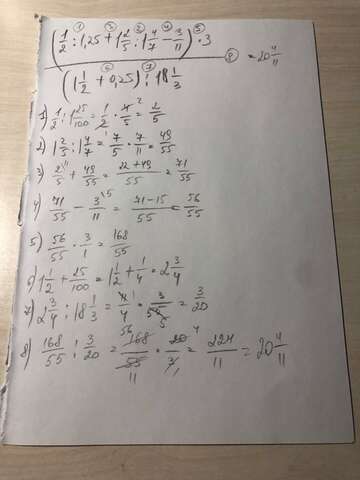 ① ③ ② ④ ⑤
(1/2 : 1,25 + 1 2/5 : 1 4/7 - 3/11) · 3
⑧ = 20 4/11
⑥ ⑦
(1 1/2 + 0,25) : 18 1/3
1) 1/2 : 1 25/100 = 1/2 · 4/5 = 2/5
2) 1 2/5 : 1 4/7 = 7/5 · 7/11 = 49/55
3) 2/5 + 49/55 = 22+49/55 = 71/55
4) 71/55 - 3/11 = 71-15/55 = 56/55
5) 56/55 · 3/1 = 168/55
6) 1 1/2 + 25/100 = 1 1/2 + 1/4 = 2 3/4
7) 2 3/4 : 18 1/3 = 11/4 · 3/55 = 3/20
8) 168/55 : 3/20 = 168/55 · 20/3 = 224/11 = 20 4/11